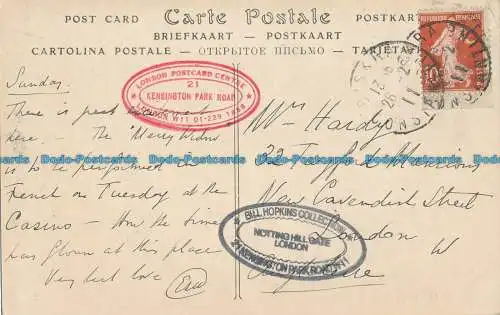 POST CARD Carte Postale POSTKARTE
BRIEFKAART - POSTKAART
CARTOLINA POSTALE - ОТКРЫТОЕ ПИСЬМО - TARJETA
Sunday.
There is great
here. The "Merry Widow"
is to be performed in
French on Tuesday at the
Casino - How the time
has flown at this place
Very best love
LONDON POSTCARD CENTRE
21
KENSINGTON PARK ROAD
LONDON W11 01-229 1888
Mrs Hardy
32 Mansions
New Cavendish Street
London
W
BILL HOPKINS COLLECTION
NOTTING HILL GATE
LONDON
21 KENSINGTON PARK ROAD W11
10
Bodo-Postcards Bodo-Postcards Bodo-Postcards Bodo-Postcards Bodo-Postcards